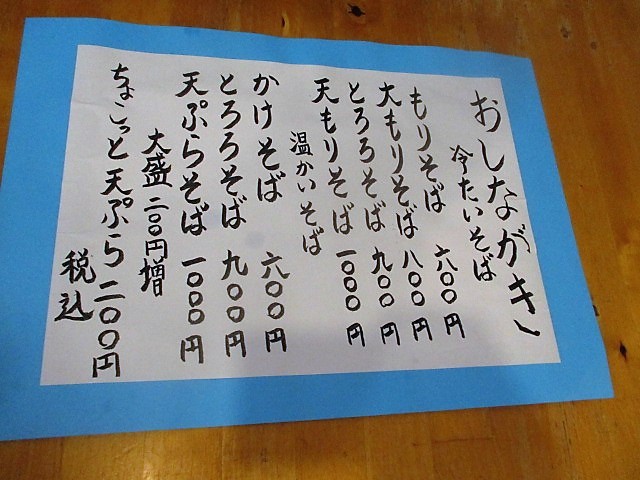 おしながき
冷たいそば
もりそば 六〇〇円
大もりそば 八〇〇円
とろろそば 九〇〇円
天もりそば 一〇〇〇円
温かいそば
かけそば 六〇〇円
とろろそば 九〇〇円
天ぷらそば 一〇〇〇円
大盛二〇〇円増
ちょこっと天ぷら二〇〇円
税込